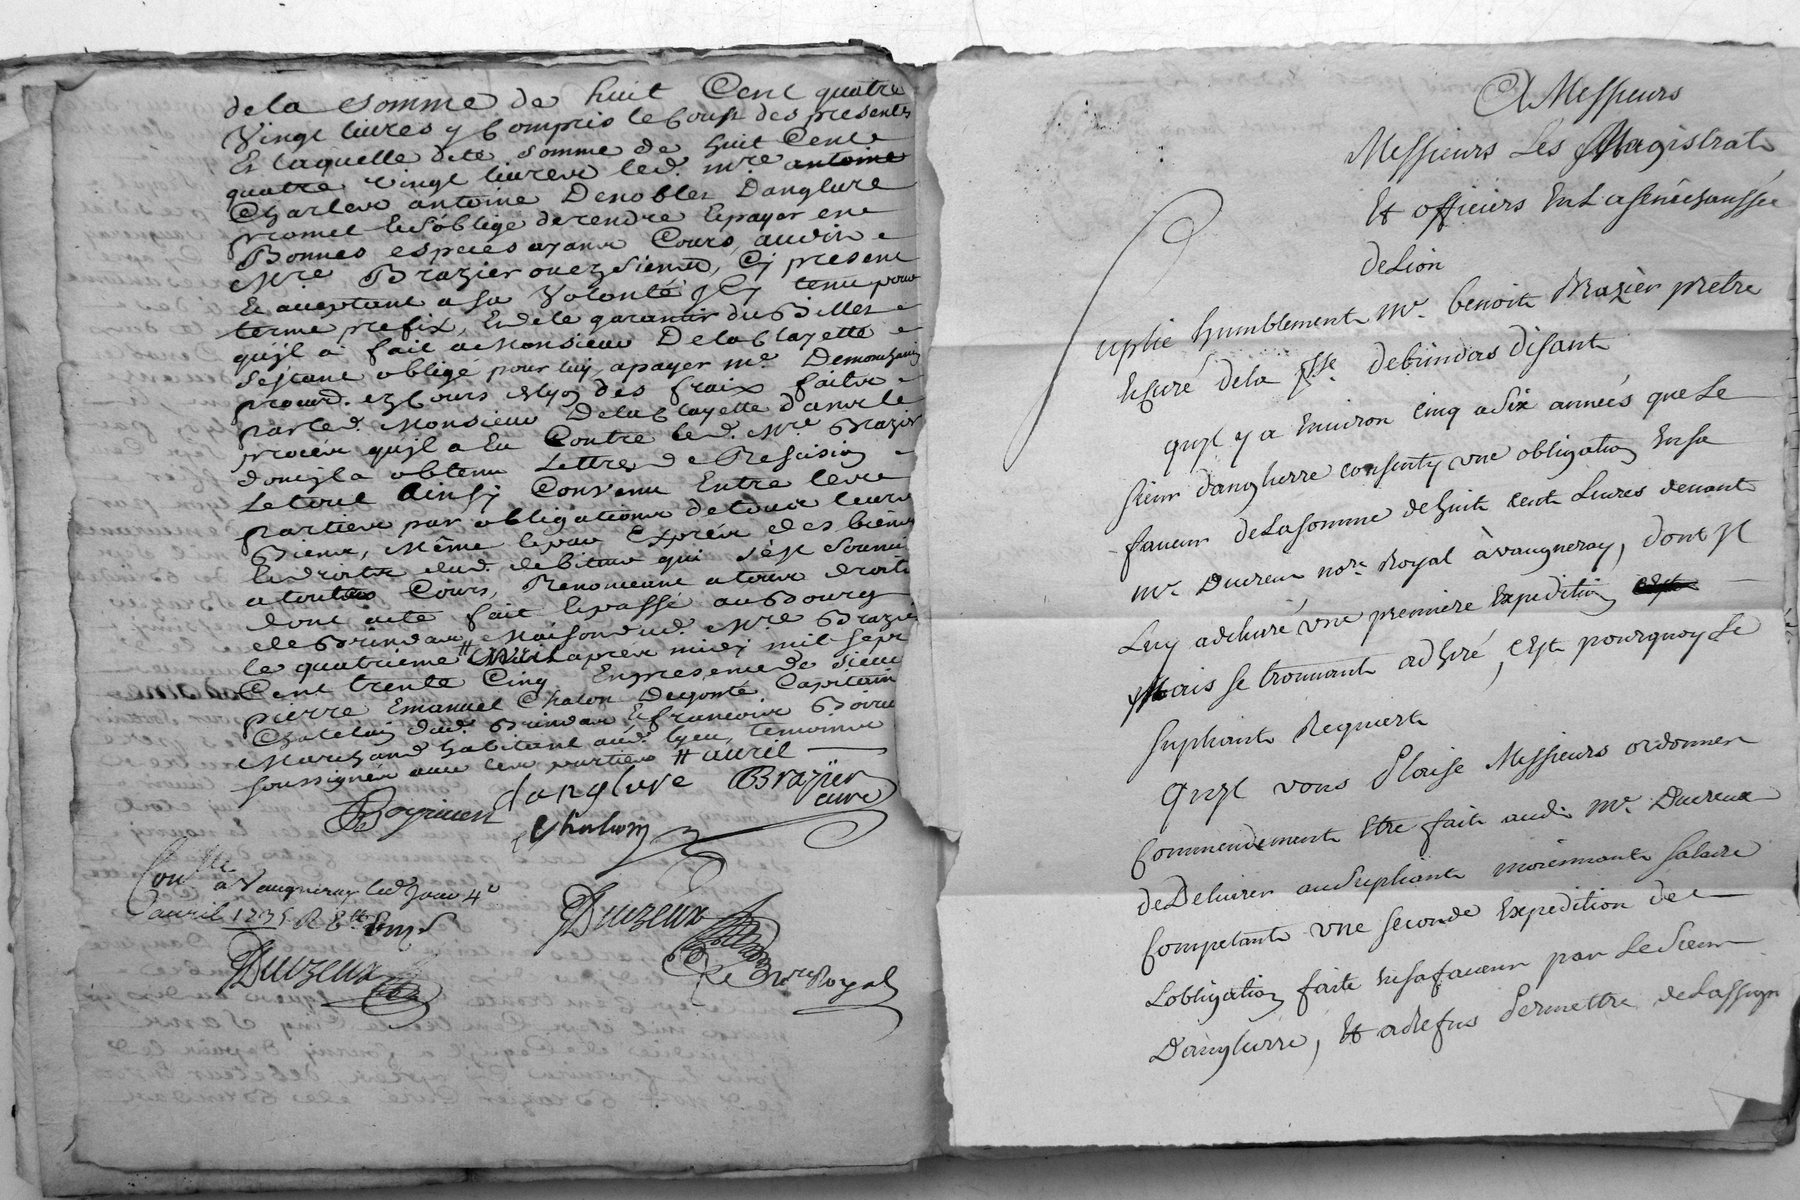 de la somme de huit Cent quatre
Vingt livres y Compris le Coust des presentes
Et laquelle dite somme de huit Cent
quatre vingt livres led. mre antoine
Charles antoine Denobles Danglure
promet et s'oblige de rendre et payer en
Bonnes especes ayant Cours, audit
Mre Brazier ou ez siens, Cy present
Et acceptant a sa Volonté tenu pour
terme prefix, Et de le garantir du Billet
qu'jl a fait a Monsieur Delablayette
s'estant obligé pour luy a payer me
procur. ez Cours Lyon des fraix faits
par led. Monsieur Delablayette dans le
procès qu'jl a Eu Contre led. Mre Brazier
dont jl a obtenu Lettres de Rescision
Le tout Ainsy Convenu Entre les
parties par obligations de tous leurs
Biens, Même led. Exprès des biens
et droits dud. debiteur qui s'est soumis
a toutes Cours, Renonceant a tous droits
dont acte fait et passé au Bourg
de Brindas Maison dud. Mre Brazier
le quatrieme avril apres midy mil sept
Cent trente Cinq En presence de sieur
pierre Emanuel Chalon Capitaine
Chatelain dud. Brindas Et francois
Marchand habitant aud. lyeu, temoins
soussignés avec les parties # avril
danglure Brazier
curé
Chalon
Conlle
a Vaugneray led. Jour 4e
avril 1735 R 8tt
Ducreux
Ducreux
Nre Royal
A Messieurs
Messieurs Les Magistrats
Et officiers En La senéchaussée
de Lion
uplie humblement Mr. benoit Brazier pretre
Et curé de la psse. de brindas disant
qu'jl y a Environ cinq a six années que Le
sieur d'anglurre consenty une obligation En sa
faveur de La somme de huit cent Livres devant
Mr. Ducreux nore. Royal à vaugneray, dont jl
Luy a delivré une premiere Expedition
Mais se trouvant adhiré, c'est pourquoy Le
supliant Requiert
Qu'jl vous Plaise Messieurs ordonner
Commendement Etre fait audit Mr. Ducreux
de Delivrer au supliant moiennant salaire
Competant une seconde Expedition de
L'obligation faite En sa faveur par Le sieur
D'anglurre, Et a Refus Permettre de L'assign